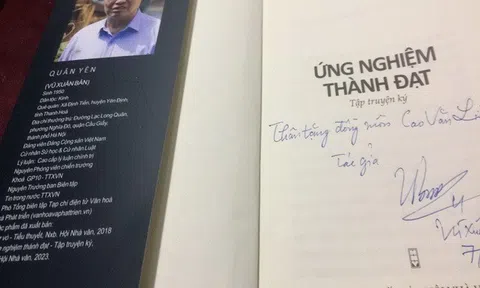 QUÂN YÊN
(VŨ XUÂN BÂN)
Sinh 1950
Dân tộc: Kinh
Quê quán: Xã Định Tiến, huyện Yên Định,
tỉnh Thanh Hoá
Địa chỉ thường trú: Đường Lạc Long Quân,
phường Nghĩa Đô, quận Cầu Giấy,
thành phố Hà Nội
Đảng viên Đảng Cộng sản Việt Nam
Cử nhân Sử học & Cử nhân Luật
Lý luận: Cao cấp lý luận chính trị
Nguyên Phóng viên chiến trường
Khoá GP10 - TTXVN
Nguyên Trưởng ban Biên tập
Tin trong nước TTXVN
Phó Tổng biên tập Tạp chí điện tử Văn hoá
và Phát triển (vanhoavaphattrien.vn)
phẩm đã xuất bản:
vỡ - Tiểu thuyết, Nxb. Hội Nhà văn, 2018
nghiệm thành đạt - Tập truyện ký,
Hội Nhà văn, 2023.
ỨNG NGHIỆM
THÀNH ĐẠT
Tập truyện ký
Thân tặng đồng môn Cao Văn
Tác giả
Vũ